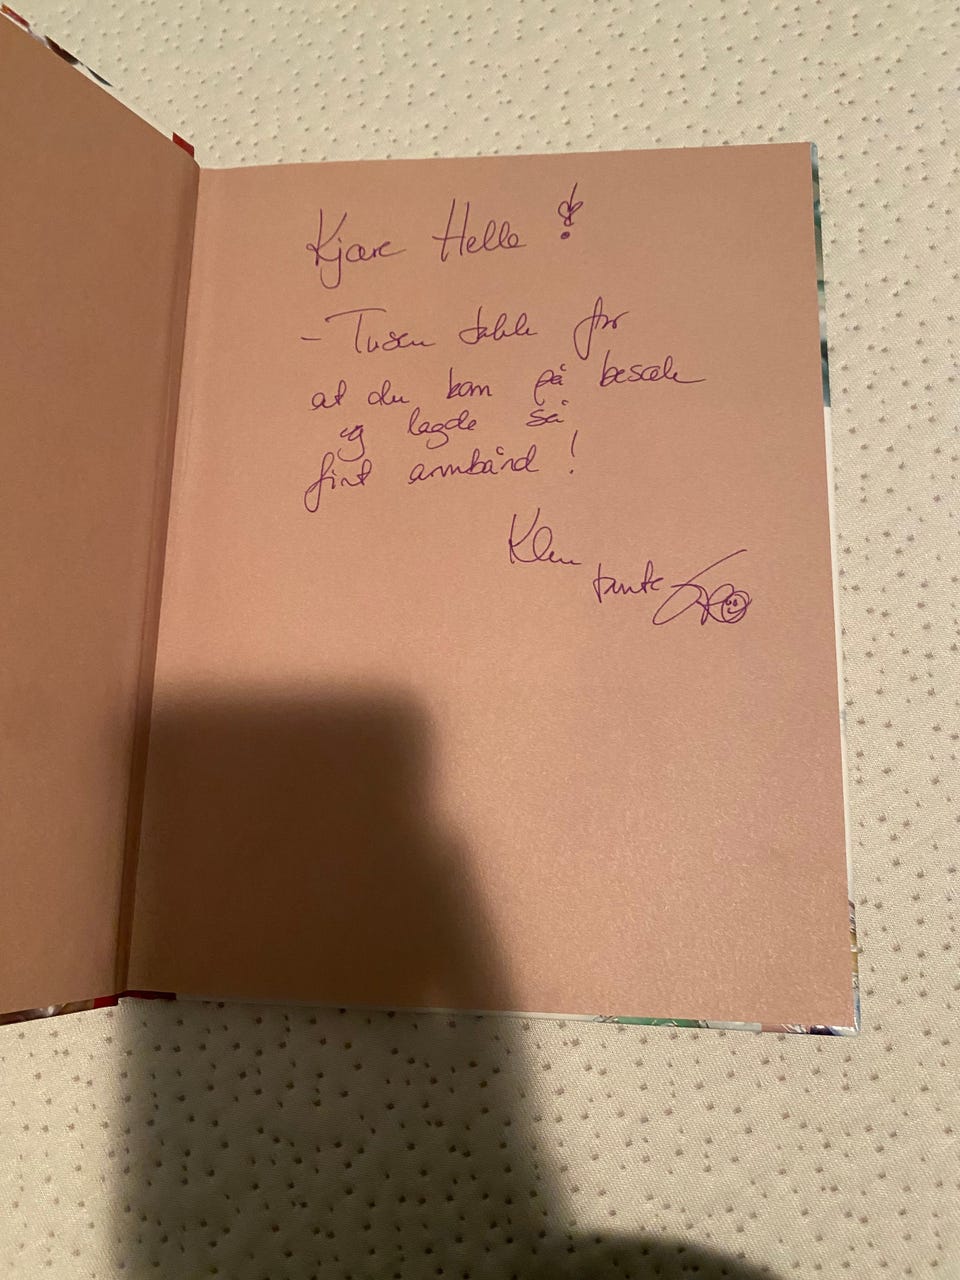 Kjære Helle!
- Tusen takk for
at du kom på besøk
og lagde så
fint armbånd!
Klem
tante